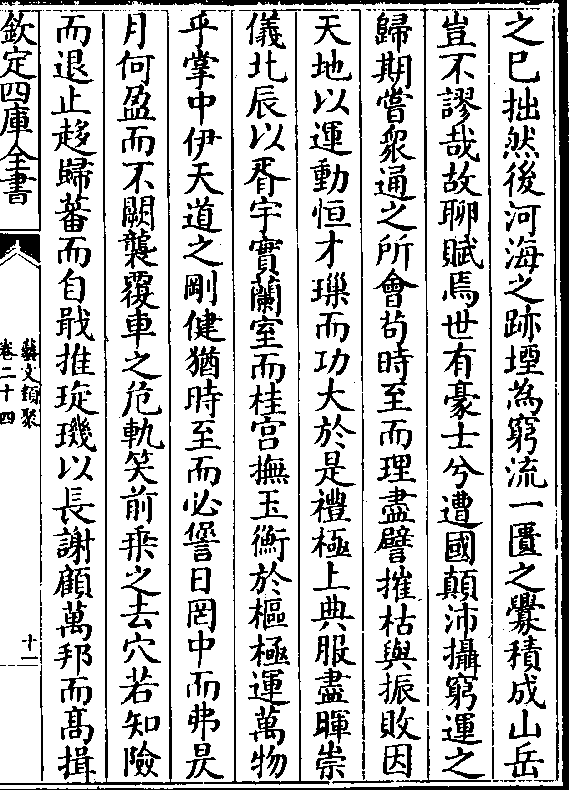 之已拙然後河海之跡堙為窮流一匱之釁積成山岳
豈不謬哉故聊賦焉世有豪士兮遭國顛沛攝窮運之
歸期嘗衆通之所會苟時至而理盡譬摧枯與振敗因
天地以運動恒才璅而功大於是禮極上典服盡暉崇
儀北辰以葺宇實蘭室而桂宮撫玉衡於樞極運萬物
乎掌中伊天道之剛健猶時至而必諐日罔中而弗昃
月何盈而不闕襲覆車之危軌笑前乗之去穴若知險
而退止趍歸蕃而自戢推琁璣以長謝顧萬邦而高揖
欽定四庫全書
藝文類聚
卷二十四
十一